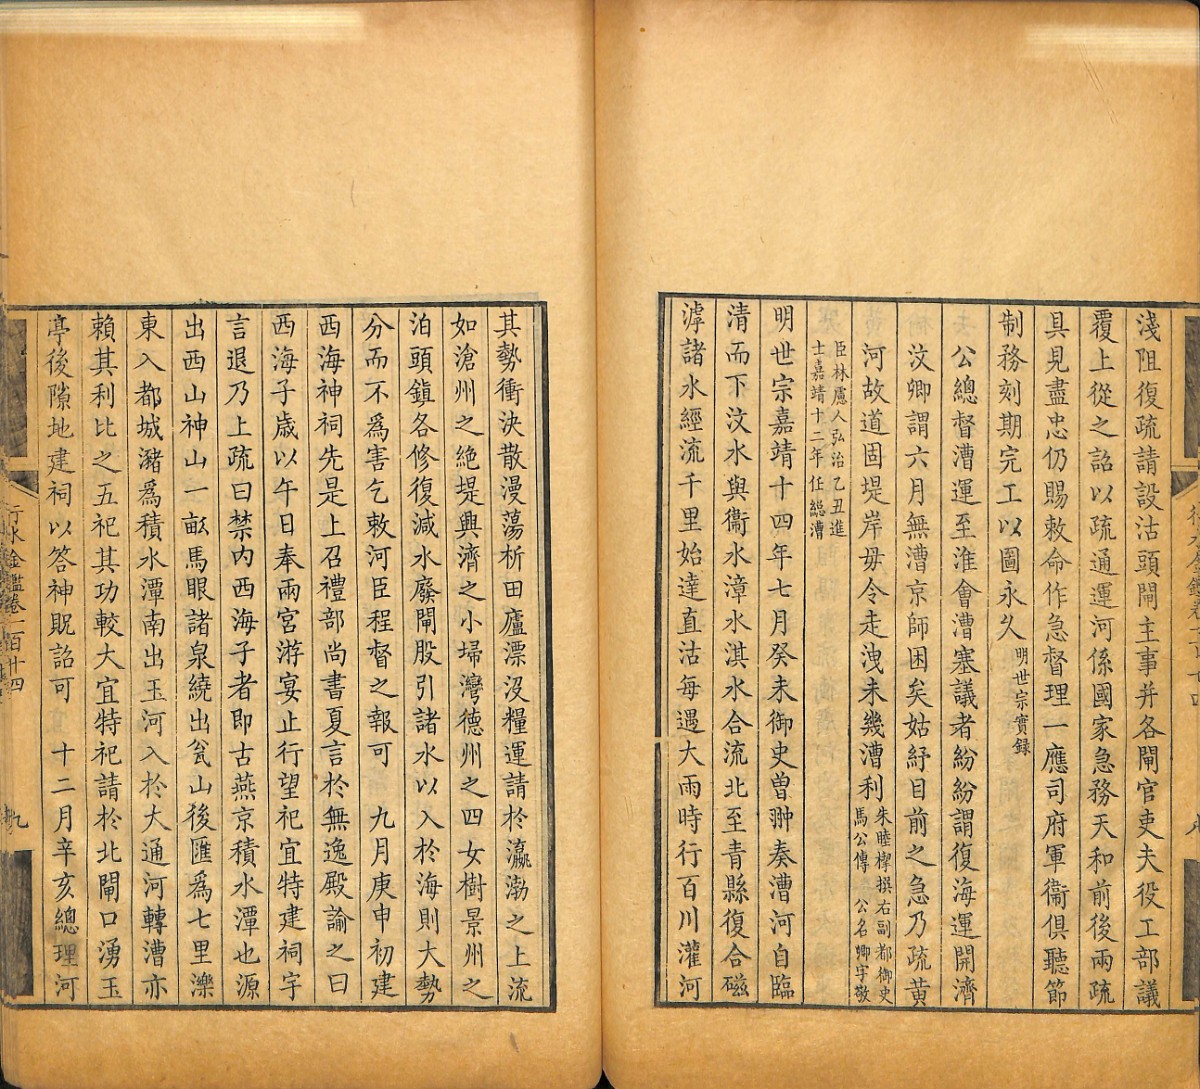 淺阻復疏請設沽頭閘主事并各閘官吏夫役工部議
覆上從之詔以疏通運河係國家急務天和前後兩疏
具見盡忠仍賜敕命作急督理一應司府軍衞俱聽節
制務刻期完工以圖永久明世宗實録
公總督漕運至淮會漕塞議者紛紛謂復海運開濟
汶卿謂六月無漕京師困矣姑紓目前之急乃疏黃
河故道固堤岸毋令走洩未幾漕利朱睦㮮撰右副都御史馬公傳 公名卿字敬
臣林慮人弘治乙丑進士嘉靖十二年任總漕
明世宗嘉靖十四年七月癸未御史曾翀奏漕河自臨
清而下汶水與衞水漳水淇水合流北至青縣復合磁
滹諸水經流千里始達直沽每遇大雨時行百川灌河
其勢衝決散漫蕩析田廬漂沒糧運請於瀛渤之上流
如滄州之絶堤興濟之小埽灣德州之四女樹景州之
泊頭鎮各修復減水廢閘股引諸水以入於海則大勢
分而不爲害乞敕河臣程督之報可 九月庚申初建
西海神祠先是上召禮部尚書夏言於無逸殿諭之曰
西海子歲以午日奉兩宮游宴止行望祀宜特建祠宇
言退乃上疏曰禁内西海子者即古燕京積水潭也源
出西山神山一畝馬眼諸泉繞出瓮山後匯爲七里濼
東入都城瀦爲積水潭南出玉河入於大通河轉漕亦
賴其利比之五祀其功較大宜特祀請於北閘口湧玉
亭後隙地建祠以答神貺詔可 十二月辛亥總理河
行水金鑑卷一百十四
九